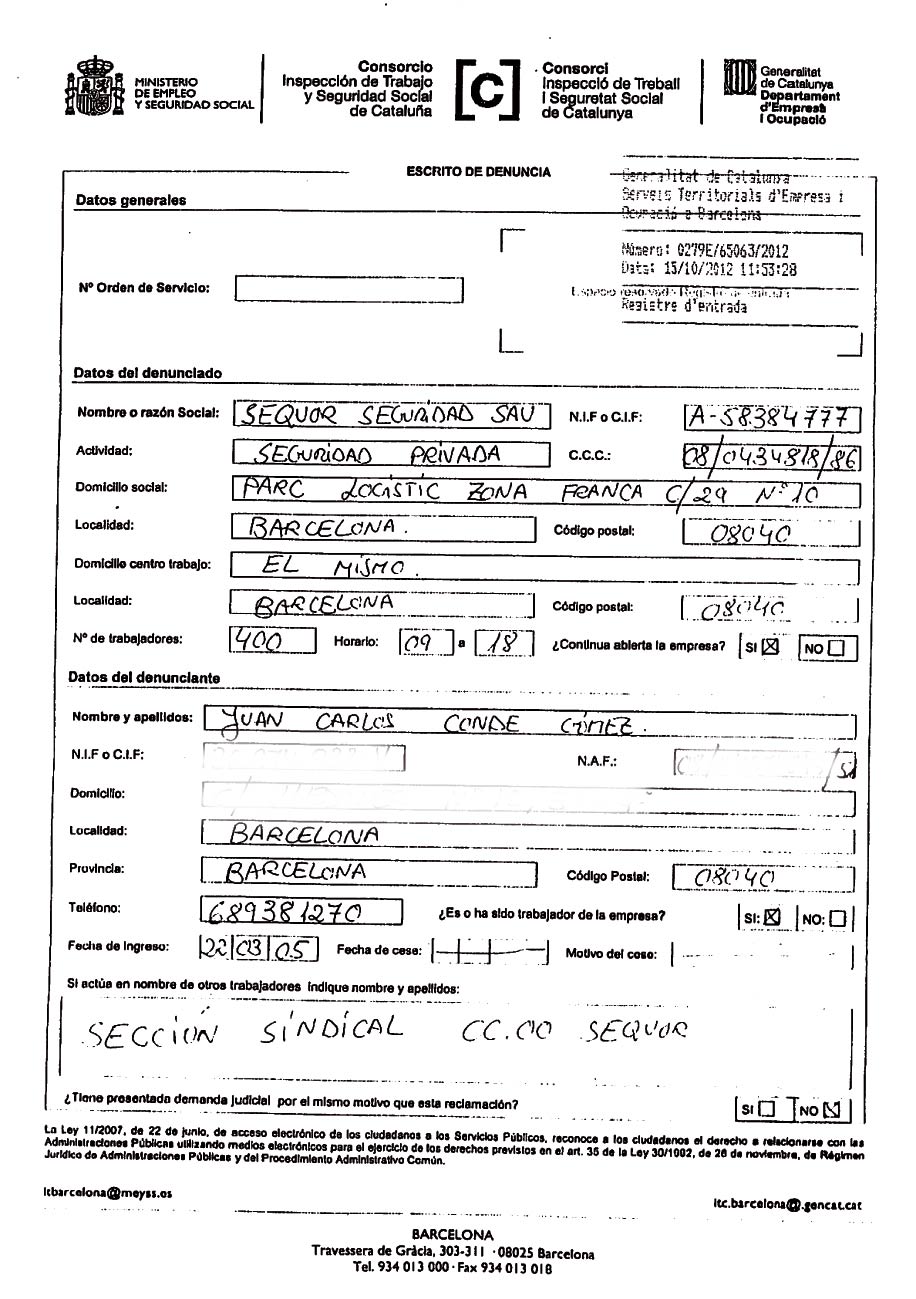 MINISTERIO
DE EMPLEO
Y SEGURIDAD SOCIAL
Consorcio
Inspección de Trabajo
y Seguridad Social
de Cataluña
[C]
Consorci
Inspecció de Treball
i Seguretat Social
de Catalunya
Generalitat
de Catalunya
Departament
d'Empresa
i Ocupació
ESCRITO DE DENUNCIA
Generalitat de Catalunya
Serveis Territorials d'Empresa i
Ocupació a Barcelona
Datos generales
Número: 0279E/65063/2012
Data: 15/10/2012 11:53:28
Nº Orden de Servicio:
Registre d'entrada
Datos del denunciado
Nombre o razón Social: SEQUOR SEGURIDAD SAU N.I.F o C.I.F: A-58384777
Actividad: SEGURIDAD PRIVADA C.C.C.: 08/0434818/86
Domicilio social: PARC LOGISTIC ZONA FRANCA C/29 Nº 10
Localidad: BARCELONA. Código postal: 08040
Domicilio centro trabajo: EL MISMO.
Localidad: BARCELONA Código postal: 08040
Nº de trabajadores: 400 Horario: 09 a 18 ¿Continua abierta la empresa? SI NO
Datos del denunciante
Nombre y apellidos: JUAN CARLOS CONDE GÓMEZ.
N.I.F o C.I.F: N.A.F.:
Domicilio:
Localidad: BARCELONA
Provincia: BARCELONA Código Postal: 08040
Teléfono: 689381270 ¿Es o ha sido trabajador de la empresa? SI: NO:
Fecha de ingreso: 22 03 05 Fecha de cese: Motivo del cese:
Si actúa en nombre de otros trabajadores indique nombre y apellidos:
SECCIÓN SINDICAL CC.OO SEQUOR
¿Tiene presentada demanda judicial por el mismo motivo que esta reclamación? SI NO
La Ley 11/2007, de 22 de junio, de acceso electrónico de los ciudadanos a los Servicios Públicos, reconoce a los ciudadanos el derecho a relacionarse con las
Administraciones Públicas utilizando medios electrónicos para el ejercicio de los derechos previstos en el art. 35 de la Ley 30/1992, de 26 de noviembre, de Régimen
Jurídico de Administraciones Públicas y del Procedimiento Administrativo Común.
itbarcelona@meyss.es
itc.barcelona@.gencat.cat
BARCELONA
Travessera de Gràcia, 303-311 · 08025 Barcelona
Tel. 934 013 000 · Fax 934 013 018